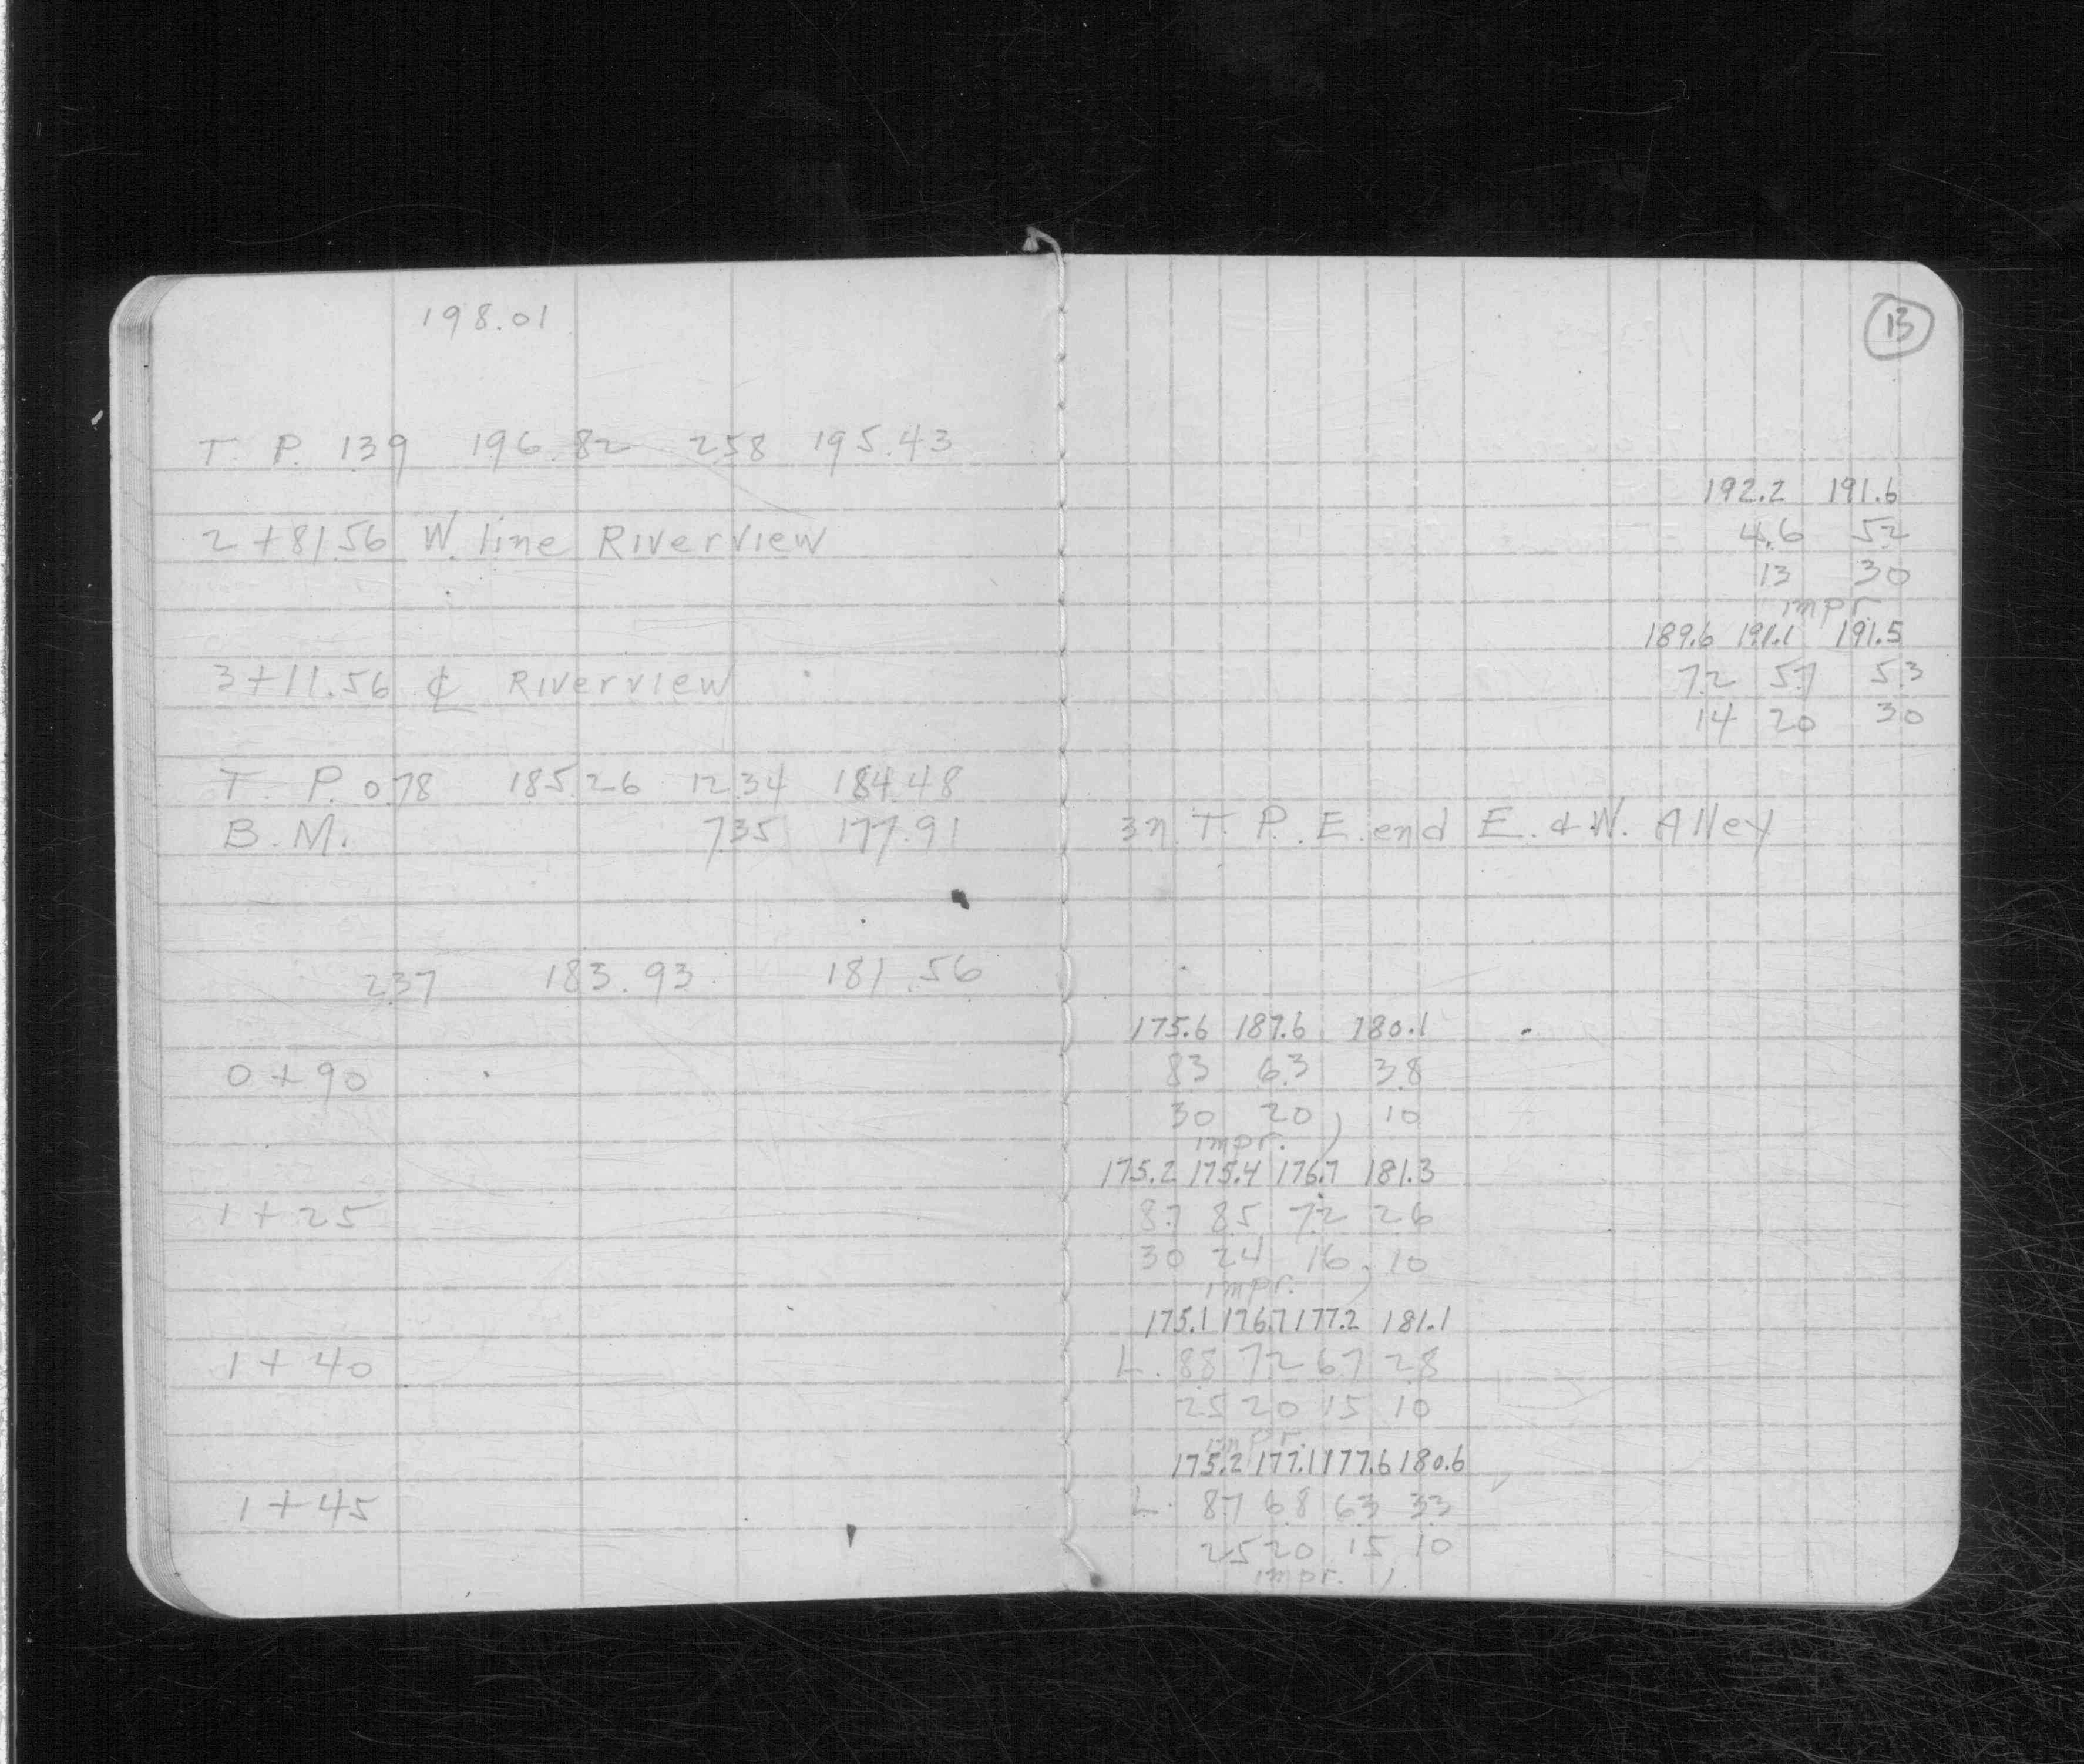 198.01
T. P. 1.39 196.82 2.58 195.43
2+81.56 W. line Riverview
3+11.56 ℄ Riverview
T. P. 0.78 185.26 12.34 184.48
B. M. 7.35 177.91
2.37 183.93 181.56
0+90
1+25
1+40
1+45
13
192.2 191.6
4.6 5.2
13 30
impr.
189.6 191.1 191.5
7.2 5.7 5.3
14 20 30
3n. T. P. E. end E. & W. Alley
175.6 187.6 180.1
8.3 6.3 3.8
30 20 10
impr.
175.2 175.4 176.7 181.3
8.7 8.5 7.2 2.6
30 24 16 10
impr.
175.1 176.7 177.2 181.1
L. 8.8 7.2 6.7 2.8
25 20 15 10
impr.
175.2 177.1 177.6 180.6
L. 8.7 6.8 6.3 3.3
25 20 15 10
impr.